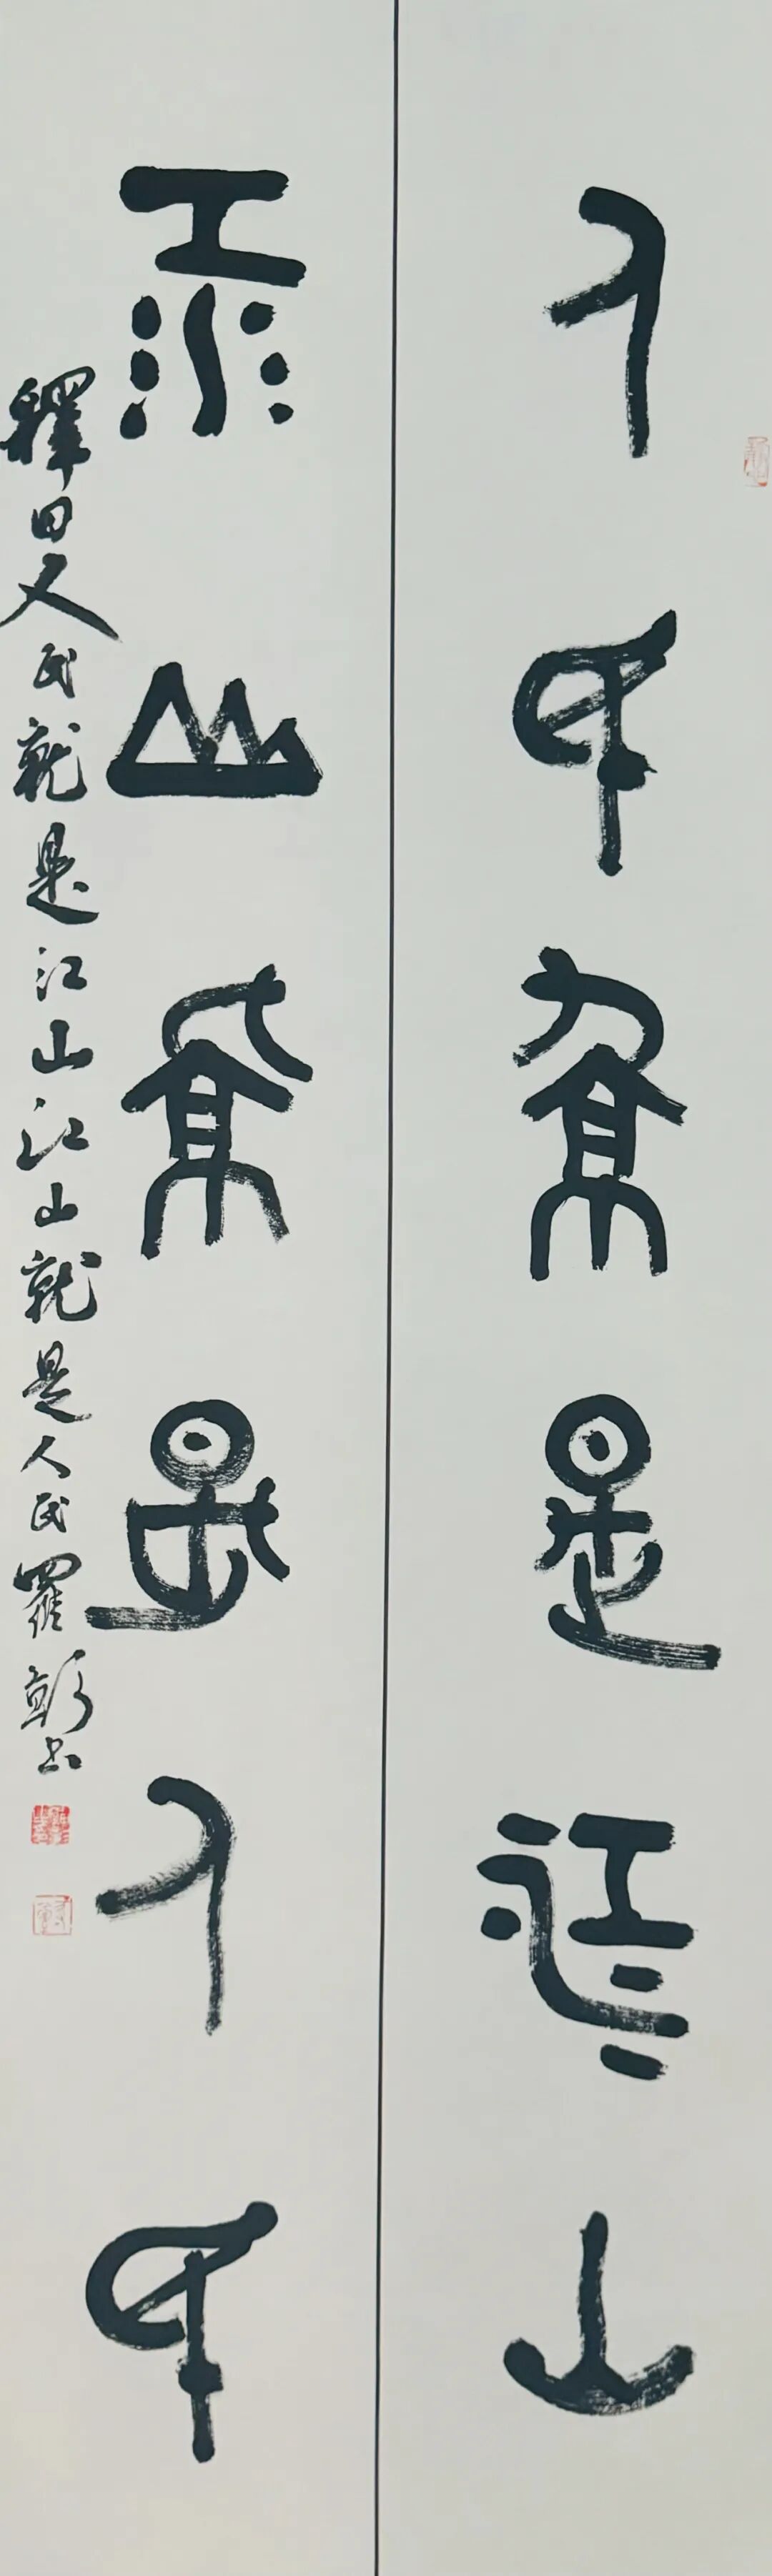 人民就是江山
江山就是人民
釋曰人民就是江山江山就是人民羅彰書